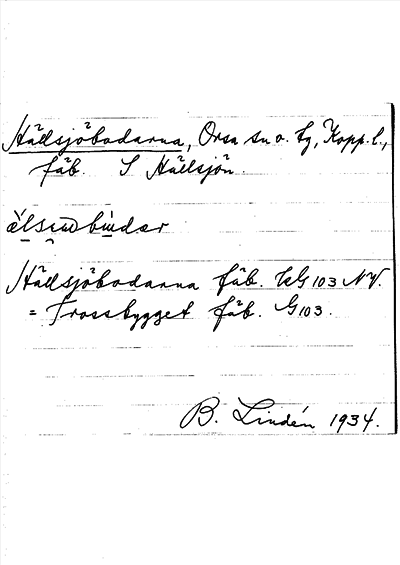 Hällsjöbodarna, Orsa sn o. tg, Kopp. l.,
fäb. S Hällsjön.
Hällsjöbodarna fäb. G 103 NV.
= Trossbygget fäb. G 103.
B. Lindén 1934.